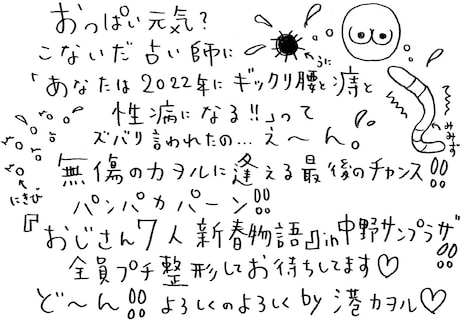 おっぱい元気?
こないだ占い師に
うに
「あなたは2022年にギックリ腰と痔と
性病になる!!」って
ズバリ言われたの…え〜ん。
て〜
みみず
無傷のカヲルに逢える最後のチャンス!!
にきび
パンパカパーン!!
『おじさん7人新春物語』in中野サンプラザ!!
全員プチ整形してお待ちしてます♡
ど〜ん!!よろしくのよろしくby港カヲル♡